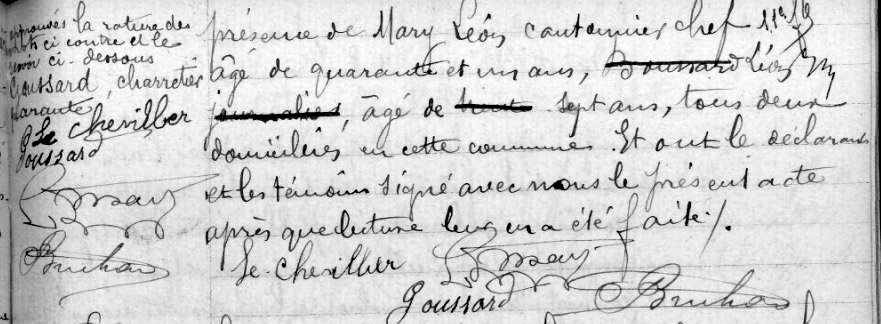 approuvés la rature des
ci contre et le
ci-dessous
Goussard, charretier
quarante
Le Chevillier
Goussard
Mary
Bruhar
présence de Mary Léon cantonnier chef
âgé de quarante et un ans, Boussard Léon
journalier, âgé de trente sept ans, tous deux
domiciliés en cette commune. Et ont le déclarant
et les témoins signé avec nous le présent acte
après que lecture leur en a été faite ./.
Le Chevillier Mary
Goussard Bruhar